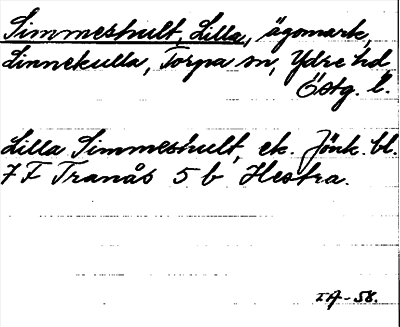 Simmeshult, Lilla, ägomark,
Linnekulla, Torpa sn, Ydre hd
Östg. l.
Lilla Simmeshult, ek. Jönk. bl.
7 F Tranås 5 b Hestra.
IA-58.